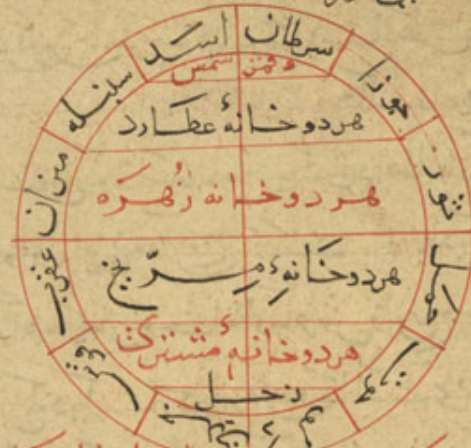 سرطان
اسد
سنبله
میزان
عقرب
قوس
جدی
حوت
حمل
ثور
جوزا
قمر شمس
هر دو خانهٔ عطارد
هر دو خانه زُهَره
هر دو خَانهٔ مِرّیخ
هر دو خانهٔ مشتریست
زحل